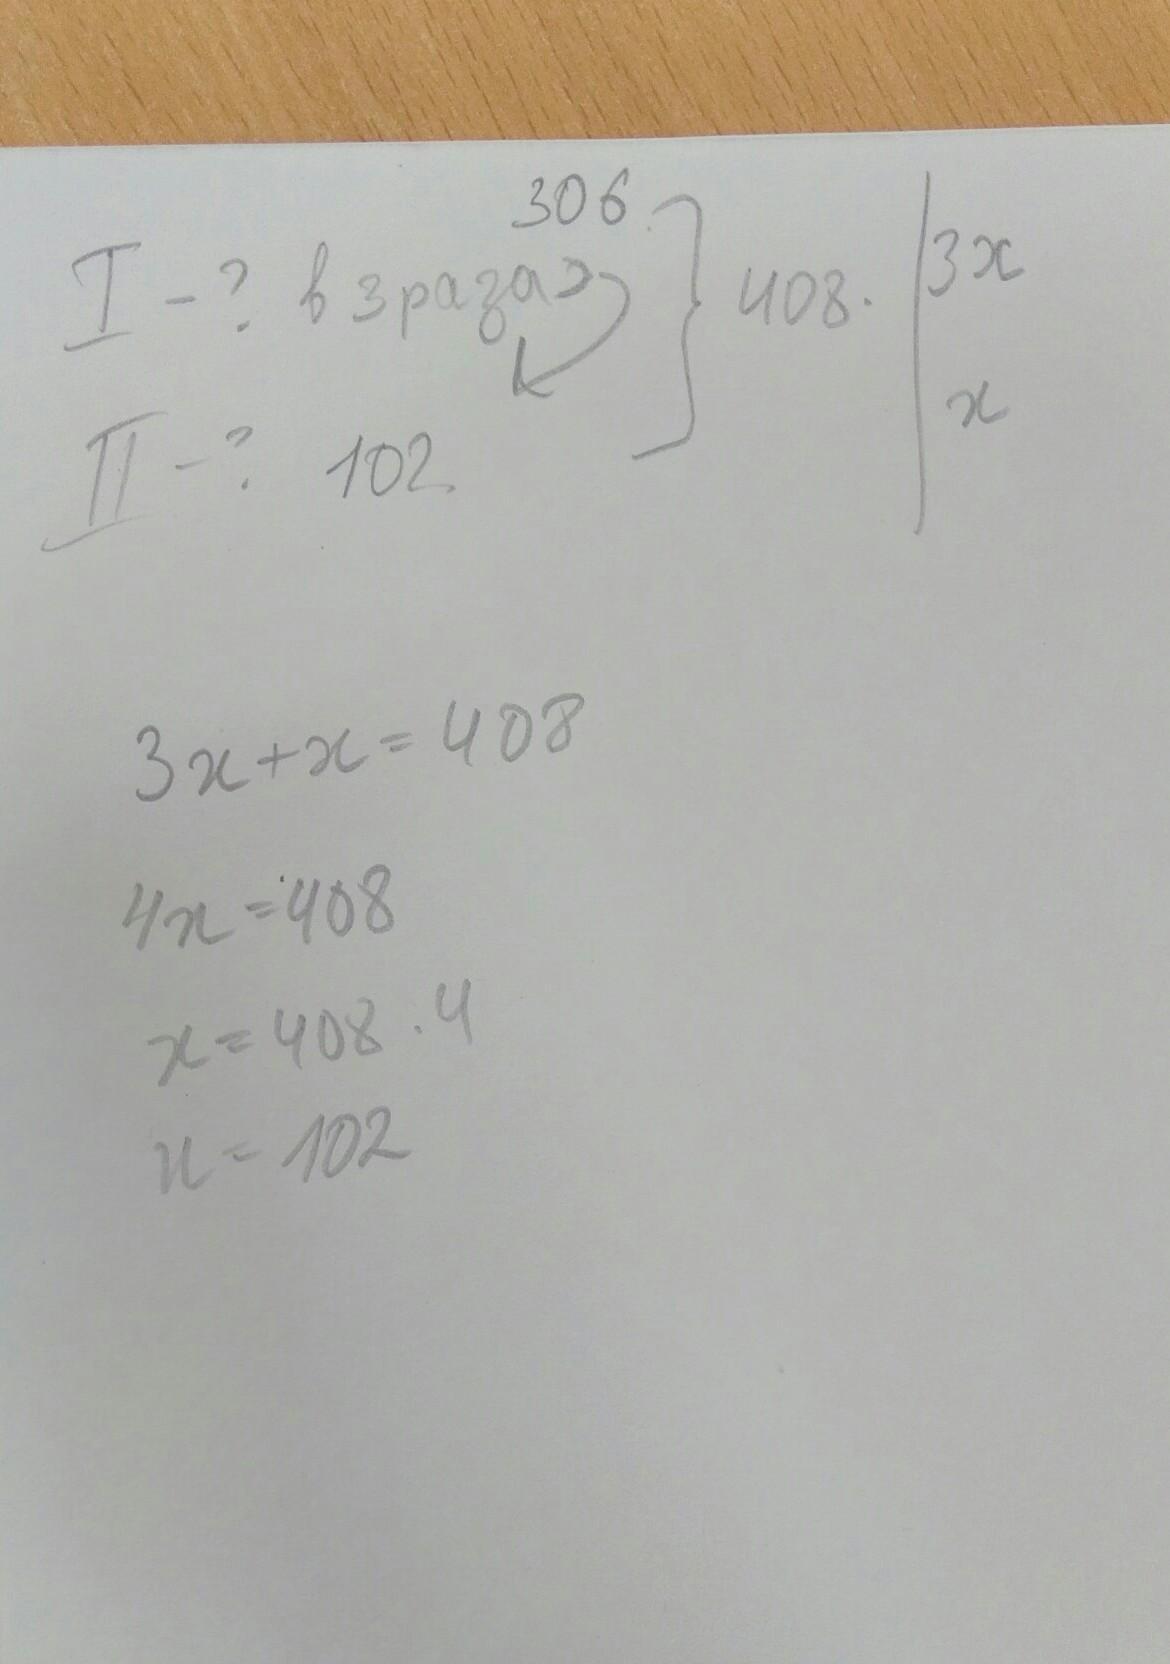 306
I - ? в 3 раза > } 408. | 3x
II - ? 102 | x
3x + x = 408
4x = 408
x = 408 . 4
x = 102